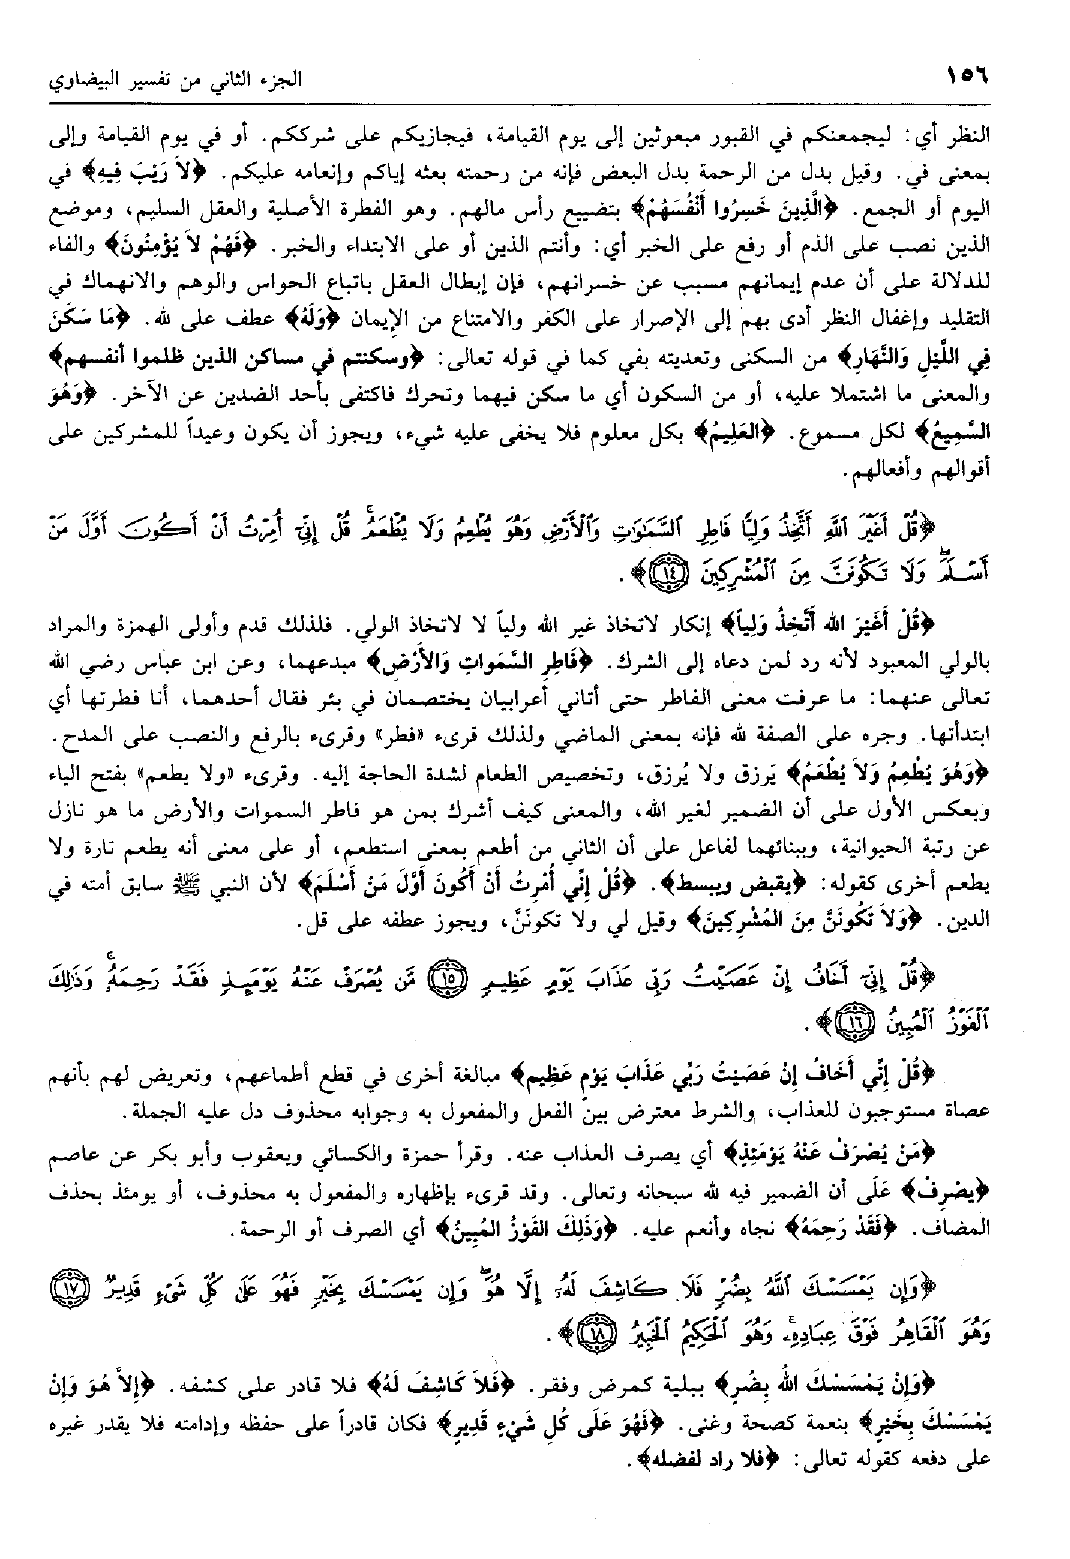 ١٥٦ الجزء الثاني من تفسير البيضاوي
النظر أي: ليجمعنكم في القبور مبعوثين إلى يوم القيامة، فيجازيكم على شرككم. أو في يوم القيامة وإلى
بمعنى في. وقيل بدل من الرحمة بدل البعض فإنه من رحمته بعثه إياكم وإنعامه عليكم. ﴿لاَ رَيْبَ فِيهِ﴾ في
اليوم أو الجمع. ﴿الَّذِينَ خَسِرُوا أَنْفُسَهُمْ﴾ بتضييع رأس مالهم. وهو الفطرة الأصلية والعقل السليم، وموضع
الذين نصب على الذم أو رفع على الخبر أي: وأنتم الذين أو على الابتداء والخبر. ﴿فَهُمْ لاَ يُؤْمِنُونَ﴾ والفاء
للدلالة على أن عدم إيمانهم مسبب عن خسرانهم، فإن إبطال العقل باتباع الحواس والوهم والانهماك في
التقليد وإغفال النظر أدى بهم إلى الإصرار على الكفر والامتناع من الإيمان ﴿وَلَهُ﴾ عطف على لله. ﴿مَا سَكَنَ
فِي اللَّيْلِ وَالنَّهَارِ﴾ من السكنى وتعديته بفي كما في قوله تعالى: ﴿وسكنتم في مساكن الذين ظلموا أنفسهم﴾
والمعنى ما اشتملا عليه، أو من السكون أي ما سكن فيهما وتحرك فاكتفى بأحد الضدين عن الآخر. ﴿وَهُوَ
السَّمِيعُ﴾ لكل مسموع. ﴿العَلِيمُ﴾ بكل معلوم فلا يخفى عليه شيء، ويجوز أن يكون وعيداً للمشركين على
أقوالهم وأفعالهم.
﴿قُلْ أَغَيْرَ ٱللَّهِ أَتَّخِذُ وَلِيًّا فَاطِرِ ٱلسَّمَٰوَٰتِ وَٱلْأَرْضِ وَهُوَ يُطْعِمُ وَلَا يُطْعَمُ ۗ قُلْ إِنِّىٓ أُمِرْتُ أَنْ أَكُونَ أَوَّلَ مَنْ
أَسْلَمَ ۖ وَلَا تَكُونَنَّ مِنَ ٱلْمُشْرِكِينَ ١٤﴾.
﴿قُلْ أَغَيْرَ الله أَتَّخِذُ وَلِياً﴾ إنكار لاتخاذ غير الله ولياً لا لاتخاذ الولي. فلذلك قدم وأولى الهمزة والمراد
بالولي المعبود لأنه رد لمن دعاه إلى الشرك. ﴿فَاطِرِ السَّمَواتِ وَالأَرْضِ﴾ مبدعهما، وعن ابن عباس رضي الله
تعالى عنهما: ما عرفت معنى الفاطر حتى أتاني أعرابيان يختصمان في بئر فقال أحدهما، أنا فطرتها أي
ابتدأتها. وجره على الصفة لله فإنه بمعنى الماضي ولذلك قرىء «فطر» وقرىء بالرفع والنصب على المدح.
﴿وَهُوَ يُطْعِمُ وَلاَ يُطْعَمُ﴾ يَرزق ولا يُرزق، وتخصيص الطعام لشدة الحاجة إليه. وقرىء «ولا يطعم» بفتح الياء
وبعكس الأول على أن الضمير لغير الله، والمعنى كيف أشرك بمن هو فاطر السموات والأرض ما هو نازل
عن رتبة الحيوانية، وببنائهما لفاعل على أن الثاني من أطعم بمعنى استطعم، أو على معنى أنه يطعم تارة ولا
يطعم أخرى كقوله: ﴿يقبض ويبسط﴾. ﴿قُلْ إِنِّي أُمِرْتُ أَنْ أَكُونَ أَوَّلَ مَنْ أَسْلَمَ﴾ لأن النبي ﷺ سابق أمته في
الدين. ﴿وَلاَ تَكُونَنَّ مِنَ المُشْرِكِينَ﴾ وقيل لي ولا تكونَنَّ، ويجوز عطفه على قل.
﴿قُلْ إِنِّىٓ أَخَافُ إِنْ عَصَيْتُ رَبِّى عَذَابَ يَوْمٍ عَظِيمٍ ١٥ مَّن يُصْرَفْ عَنْهُ يَوْمَئِذٍ فَقَدْ رَحِمَهُۥ ۚ وَذَٰلِكَ
ٱلْفَوْزُ ٱلْمُبِينُ ١٦﴾.
﴿قُلْ إِنِّي أَخَافُ إِنْ عَصَيْتُ رَبِّي عَذَابَ يَوْمٍ عَظِيمٍ﴾ مبالغة أخرى في قطع أطماعهم، وتعريض لهم بأنهم
عصاة مستوجبون للعذاب، والشرط معترض بين الفعل والمفعول به وجوابه محذوف دل عليه الجملة.
﴿مَنْ يُصْرَفْ عَنْهُ يَوْمَئِذٍ﴾ أي يصرف العذاب عنه. وقرأ حمزة والكسائي ويعقوب وأبو بكر عن عاصم
﴿يصْرِفْ﴾ عَلَى أن الضمير فيه لله سبحانه وتعالى. وقد قرىء بإظهاره والمفعول به محذوف، أو يومئذ بحذف
المضاف. ﴿فَقَدْ رَحِمَهُ﴾ نجاه وأنعم عليه. ﴿وَذَلِكَ الفَوْزُ المُبِينُ﴾ أي الصرف أو الرحمة.
﴿وَإِن يَمْسَسْكَ ٱللَّهُ بِضُرٍّ فَلَا كَاشِفَ لَهُۥٓ إِلَّا هُوَ ۖ وَإِن يَمْسَسْكَ بِخَيْرٍ فَهُوَ عَلَىٰ كُلِّ شَىْءٍ قَدِيرٌ ١٧
وَهُوَ ٱلْقَاهِرُ فَوْقَ عِبَادِهِۦ ۚ وَهُوَ ٱلْحَكِيمُ ٱلْخَبِيرُ ١٨﴾.
﴿وَإِنْ يَمْسَسْكَ اللهُ بِضُرٍ﴾ ببلية كمرض وفقر. ﴿فَلاَ كَاشِفَ لَهُ﴾ فلا قادر على كشفه. ﴿إِلاَّ هُوَ وَإِنْ
يَمْسَسْكَ بِخَيْرٍ﴾ بنعمة كصحة وغنى. ﴿فَهُوَ عَلَى كُلِ شَيْءٍ قَدِيرٍ﴾ فكان قادراً على حفظه وإدامته فلا يقدر غيره
على دفعه كقوله تعالى: ﴿فلا راد لفضله﴾.